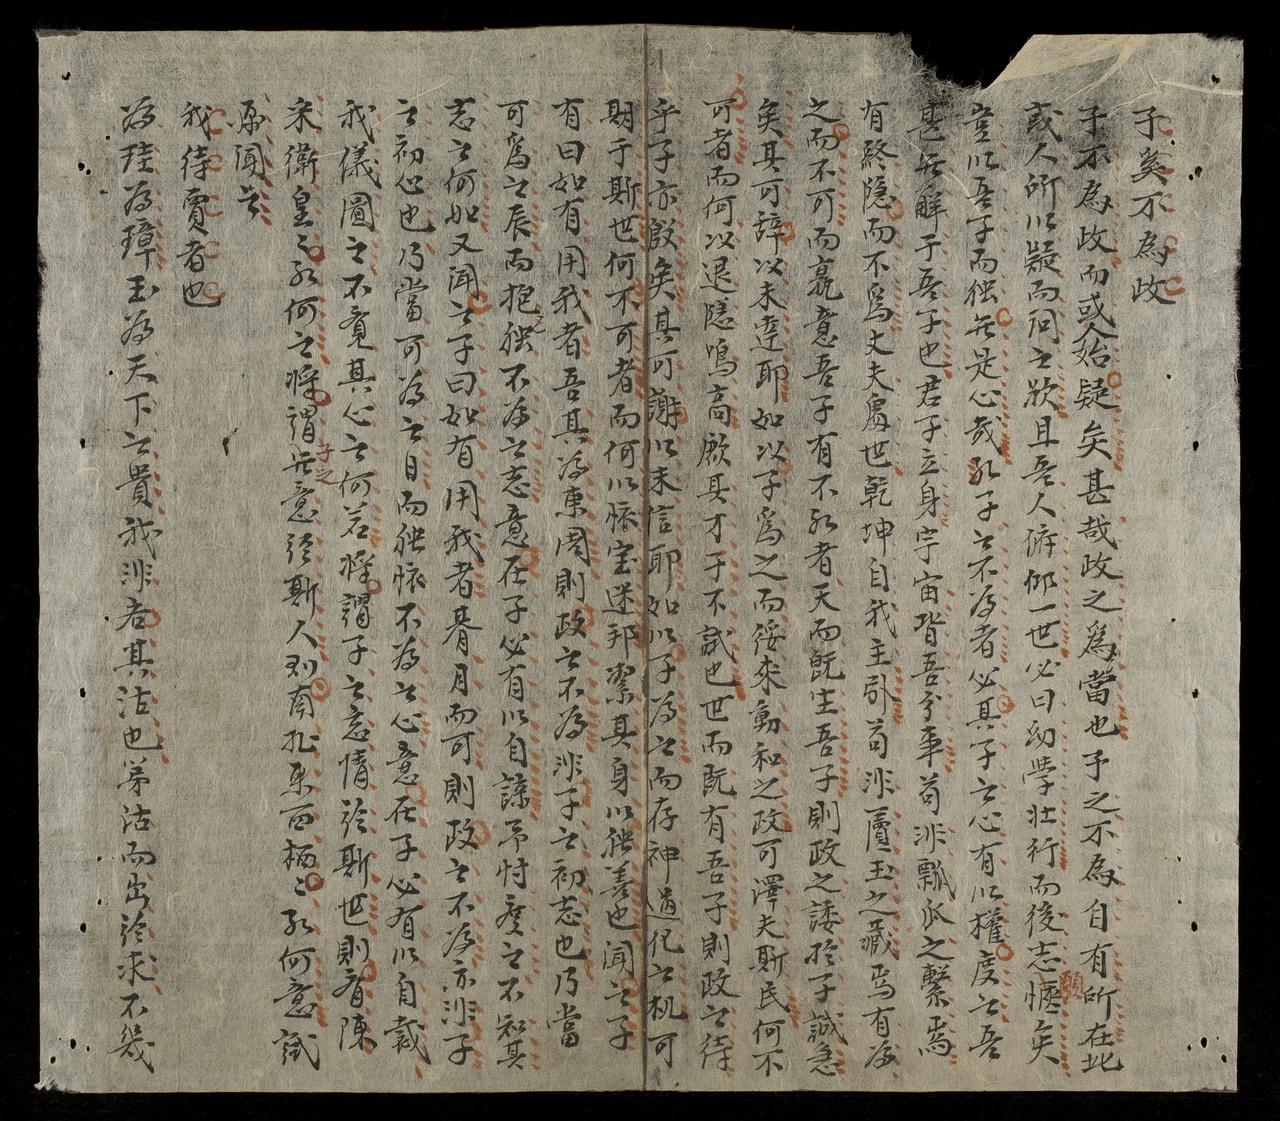 子奚不為政
子不為政而或人始疑矣甚哉政之為當也予之不為自有所在此
或人所以疑而问之欤且吾人俯仰一世必曰幼學壮行而後志愜願矣
豈以吾子而独无是心哉孔子之不為者必其子之心有以權度之吾
甚无解于吾子也君子立身宇宙皆吾分事苟非瓢瓜之繫焉
有終隐而不爲丈夫處世乾坤自我主张苟非匵玉之藏焉有為
之而不可而竟意吾子有不孔者天而既生吾子則政之諉於子誠急
矣其可辞以未逹耶如以子爲之而綏来動和之政可澤夫斯民何不
可者而何以退隠鳴高厥其才于不試也世而既有吾子則政之待
乎子亦殷矣其可謝以未信耶如以子為之而存神過化之机可
期于斯世何不可者而何以懐宝迷邦潔其身以独善也聞之子
有曰如有用我者吾其為東周則政之不為非子之初志也乃當
可爲之辰而抱独不為之志意在子必有以自諒予忖度之不知其
志之何如又聞之子曰如有用我者朞月而可則政之不為亦非子
之初心也乃當可為之日而独懐不為之心意在子必有以自裁
我儀圖之不竟其心之何若将謂子之忘情於斯世則有陳
宋衛皇こ孔何之将謂子之无意於斯人則有 而栖こ孔何意試
為聞之
我待賈者也
為珪為璋玉為天下之貴我非吝其沽也第沽而出於求不幾